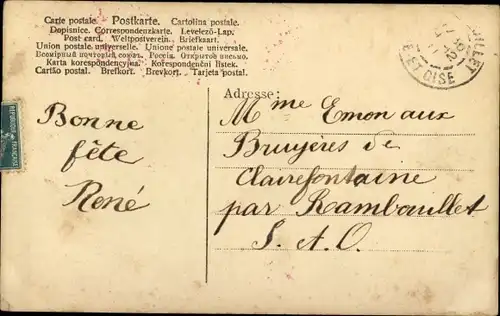 Carte postale. Postkarte. Cartolina postale.
Dopisnice. Correspondenzkarte. Levelező-Lap.
Post card. Weltpostverein. Briefkaart.
Union postale universelle. Unione postale universale.
Всемірный почтовый союзъ. Россія. Открытое письмо.
Karta korespondencyjna. Korespondenční lístek.
Cartão postal. Brefkort. Brevkort. Tarjeta postal.
ET OISE
Adresse:
Bonne
fête
René
Mme Emon aux
Bruyères de
Clairefontaine
par Rambouillet
S. et O.